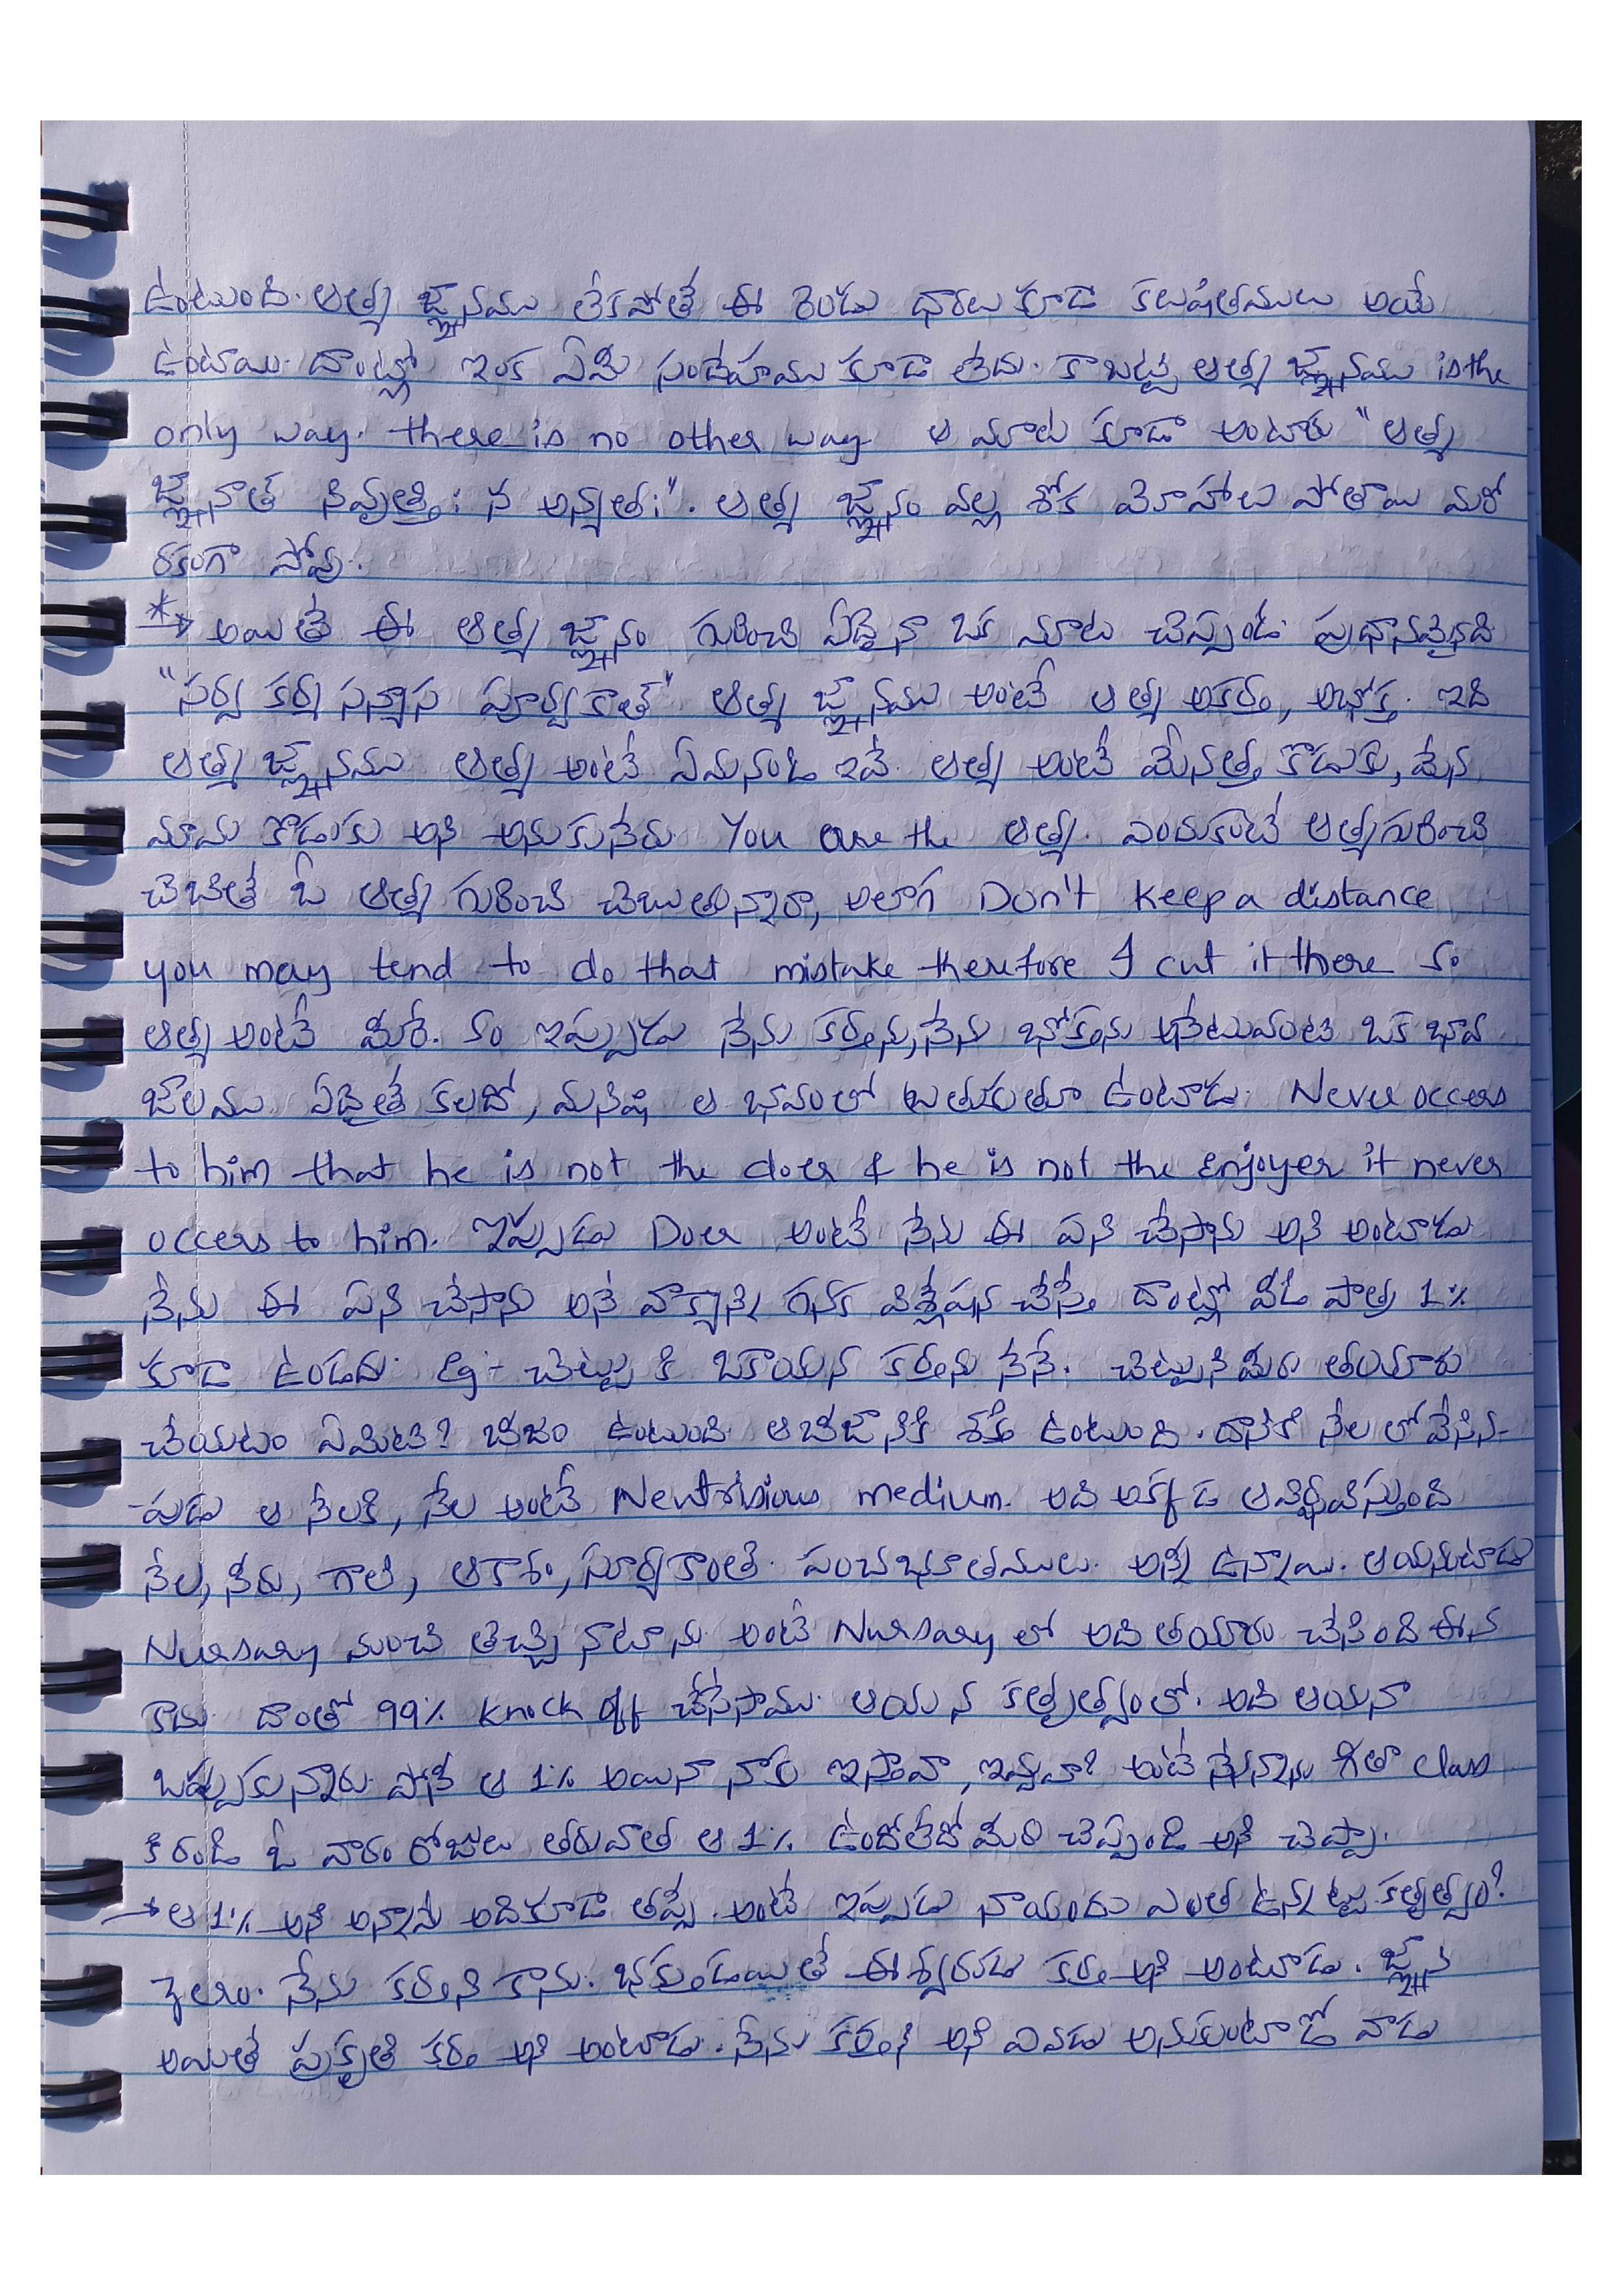 ఉంటుంది. ఆత్మ జ్ఞానము లేకపోతే ఈ రెండు ధారలు కూడా కలుషితములు అయే
ఉంటాయి. దాంట్లో ఇంక ఏమి సందేహము కూడా లేదు. కాబట్టి ఆత్మ జ్ఞానము is the
only way. there is no other way ఆ మాట కూడా అంటారు "ఆత్మ
జ్ఞానాత్ నివృత్తి: న అన్యత:". ఆత్మ జ్ఞానం వల్ల శోక మోహాలు పోతాయి మరో
రకంగా పోవు.
* → అయితే ఈ ఆత్మ జ్ఞానం గురించి ఏదైనా ఒక మాట చెప్పండి. ప్రధానమైనది
"సర్వ కర్మ సన్యాస పూర్వకాత్" ఆత్మ జ్ఞానము అంటే ఆత్మ అకర్త, అభోక్త. ఇది
ఆత్మ జ్ఞానము ఆత్మ అంటే ఏమనండి ఇవే. ఆత్మ అంటే మేనత్త కొడుకు, మేన
మామ కొడుకు అని అనుకునేరు. You are the ఆత్మ. ఎందుకంటే ఆత్మగురించి
చెబితే ఓ ఆత్మ గురించి చెబుతున్నారా, అలాగ Don't keep a distance
you may tend to do that mistake therefore I cut it there so
ఆత్మ అంటే మీరే. so ఇప్పుడు నేను కర్తను, నేను భోక్తను అనేటువంటి ఒక భావ
జాలము ఏదైతే కలదో, మనిషి ఆ భవంలో బతుకుతూ ఉంటాడు. Never occers
to him that he is not the doer & he is not the enjoyer it never
occers to him. ఇప్పుడు Doer అంటే నేను ఈ పని చేసాను అని అంటాడు
నేను ఈ పని చేసాను అనే వాక్యాన్ని గనక విశ్లేషన చేస్తే దాంట్లో వీడి పాత్ర 1%
కూడా ఉండదు. Eg:- చెట్టు కి ఒకాయన కర్తను నేనే. చెట్టుని మీరు తయారు
చేయటం ఏమిటి? బీజం ఉంటుంది ఆ బీజానికి శక్తి ఉంటుంది. దానికి నేల లో వేసిన-
-పుడు ఆ నేలకి, నేల అంటే Neutrisious medium. అది అక్కడ ఆవిర్భవిస్తుంది
నేల, నీరు, గాలి, ఆకాశం, సూర్యకాంతి. పంచభూతములు. అన్ని ఉన్నాయి. ఆయనంటాడు
Nursary నుంచి తెచ్చి నాటాను అంటే Nursary లో అది తయారు చేసింది ఈన
కాదు. దాంతో 99% knock off చేసేసాము. ఆయన కర్తృత్వంలో. అది ఆయనా
ఒప్పుకున్నారు. పోనీ ఆ 1% అయినా నాకు ఇస్తావా, ఇవ్వవా? అంటే నేనన్నాను గీతా class
కి రండి ఓ వారం రోజులు తరువాత ఆ 1% ఉందోలేదో మీరే చెప్పండి అని చెప్పా.
→ ఆ 1% అని అన్నానే అదికూడా తప్పే. అంటే ఇప్పుడు నాయందు ఎంత ఉన్నట్టు కర్తృత్వం?
zero. నేను కర్తని కాను. భక్తుండయితే ఈశ్వరుడు కర్త అని అంటాడు. జ్ఞాని
అయితే ప్రకృతి కర్త అని అంటాడు. నేను కర్తని అని ఎవడు అనుకుంటాడో వాడు